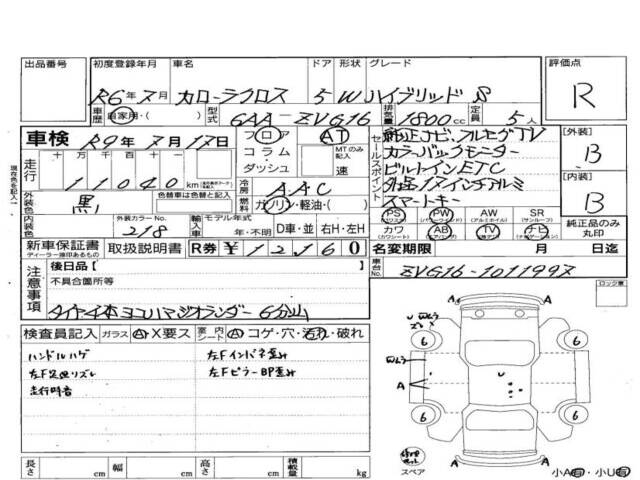 出品番号 初度登録年月 車名 ドア 形状 グレード 評価点
R6年7月 カローラクロス 5 W ハイブリッド S R
車歴 自家用・( ) 型式 6AA-ZVG16 排気量 1800cc 定員 5人
車検 R9年7月17日 フロア AT
コラム・ MTのみ記入
ダッシュ 速
走行 十万 万 千 百 十 一
11040 km
冷房 AAC
燃料 ガソリン・軽油・( )
セールスポイント
純正ナビ、フルセグTV
カラーバックモニター
ビルトインETC
外品17インチアルミ
スマートキー
[外装] B
[内装] B
外装色 黒 色替車は色替前の色
内装色 外装カラーNo. 218 輸入車 モデル年式 年・不明 D車・並 右H・左H
PS PW AW SR
カワ AB TV ナビ
純正品のみ丸印
新車保証書 取扱説明書 R券 ¥12160
ディーラー捺印あるもの
名変期限 月 日迄
車台No. ZVG16-1011997
現在色を記入
注意事項 後日品[ ]
不具合箇所等
タイヤ4本ヨコハマジオランダー 6分山
ロック室
検査員記入 ガラス A・X要ス 室内シート A コゲ・穴・汚れ・破れ
ハンドルハゲ 左Fインパネ歪み
左F足廻りズレ 左FピラーBP歪み
走行時音
6 6
6 6
A A
A A
U
スペア
小A有・小U有
長さ cm 幅 cm 高さ cm 積載量 kg